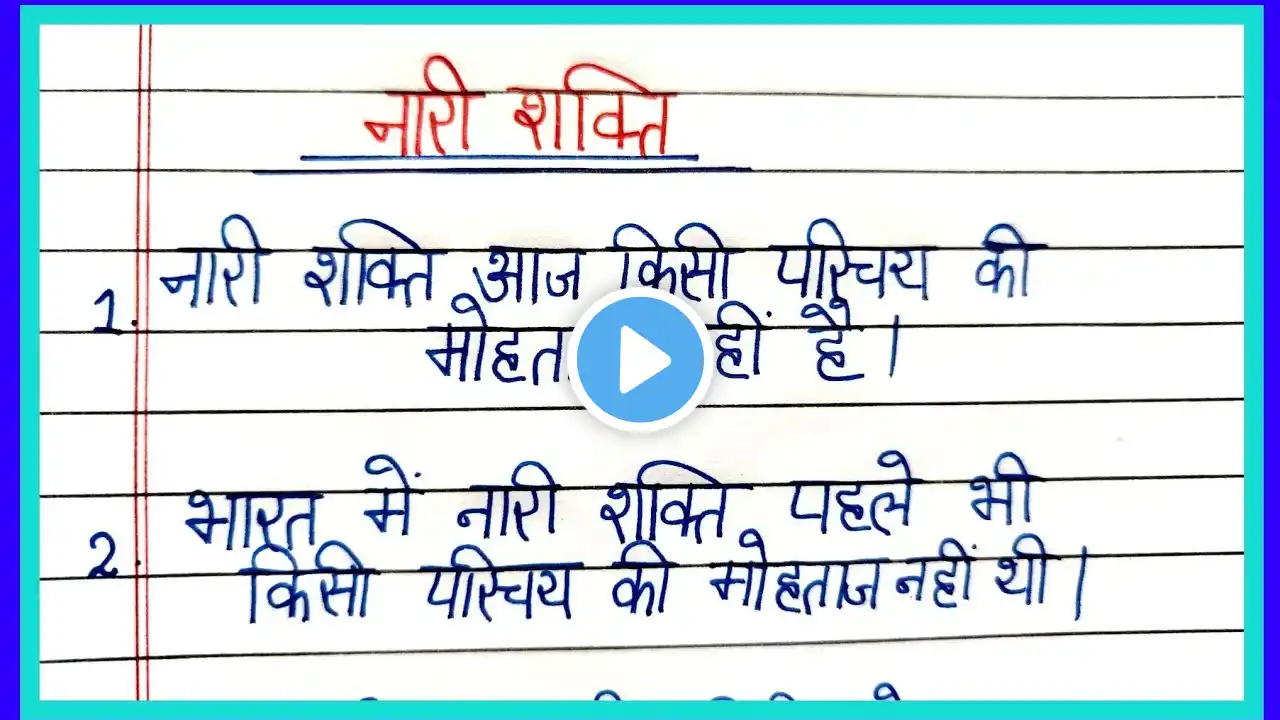 नारी शक्ति
1. नारी शक्ति आज किसी परिचय की
हीं है।
2. भारत में नारी शक्ति पहले भी
किसी परिचय की मोहताज नहीं थी।